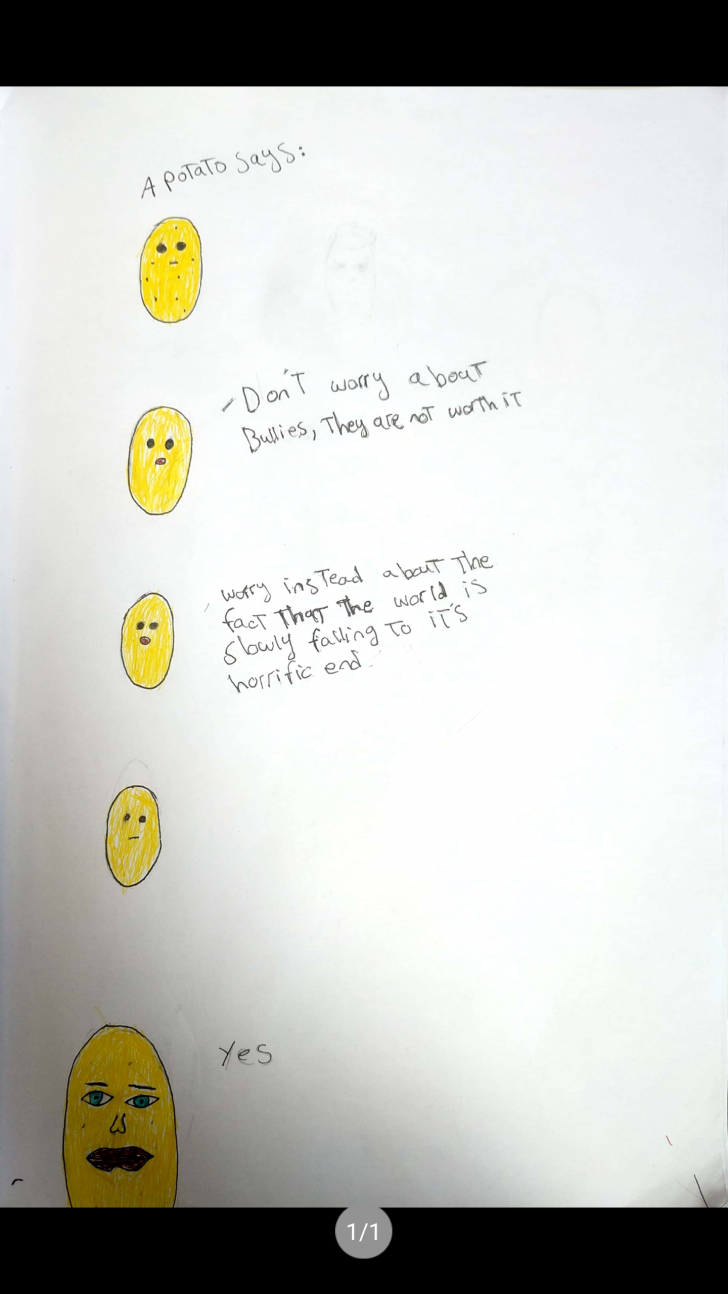 A potato says:
- Don't worry about
Bullies, they are not worth it
worry instead about the
fact that the world is
slowly falling to it's
horrific end.
Yes
1/1